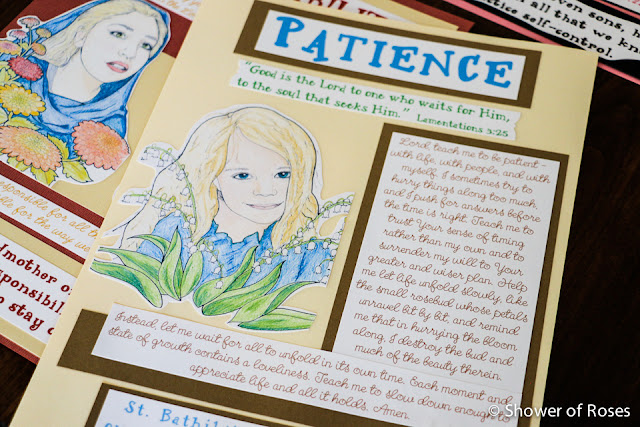 PATIENCE
"Good is the Lord to one who waits for Him,
to the soul that seeks Him." Lamentations 3:25
Lord, teach me to be patient -
with life, with people, and with
myself. I sometimes try to
hurry things along too much,
and I push for answers before
the time is right. Teach me to
trust Your sense of timing
rather than my own and to
surrender my will to Your
greater and wiser plan. Help
me let life unfold slowly, like
the small rosebud whose petals
unravel bit by bit, and remind
me that in hurrying the bloom
along, I destroy the bud and
much of the beauty therein.
Instead, let me wait for all to unfold in its own time. Each moment and
state of growth contains a loveliness. Teach me to slow down enough to
appreciate life and all it holds. Amen.
St. Bathil
responsible for all t
le for the way we
mother o
sponsibil
o stay c
ven sons, h
all that we kn
ctice self-control.
© Shower of Roses